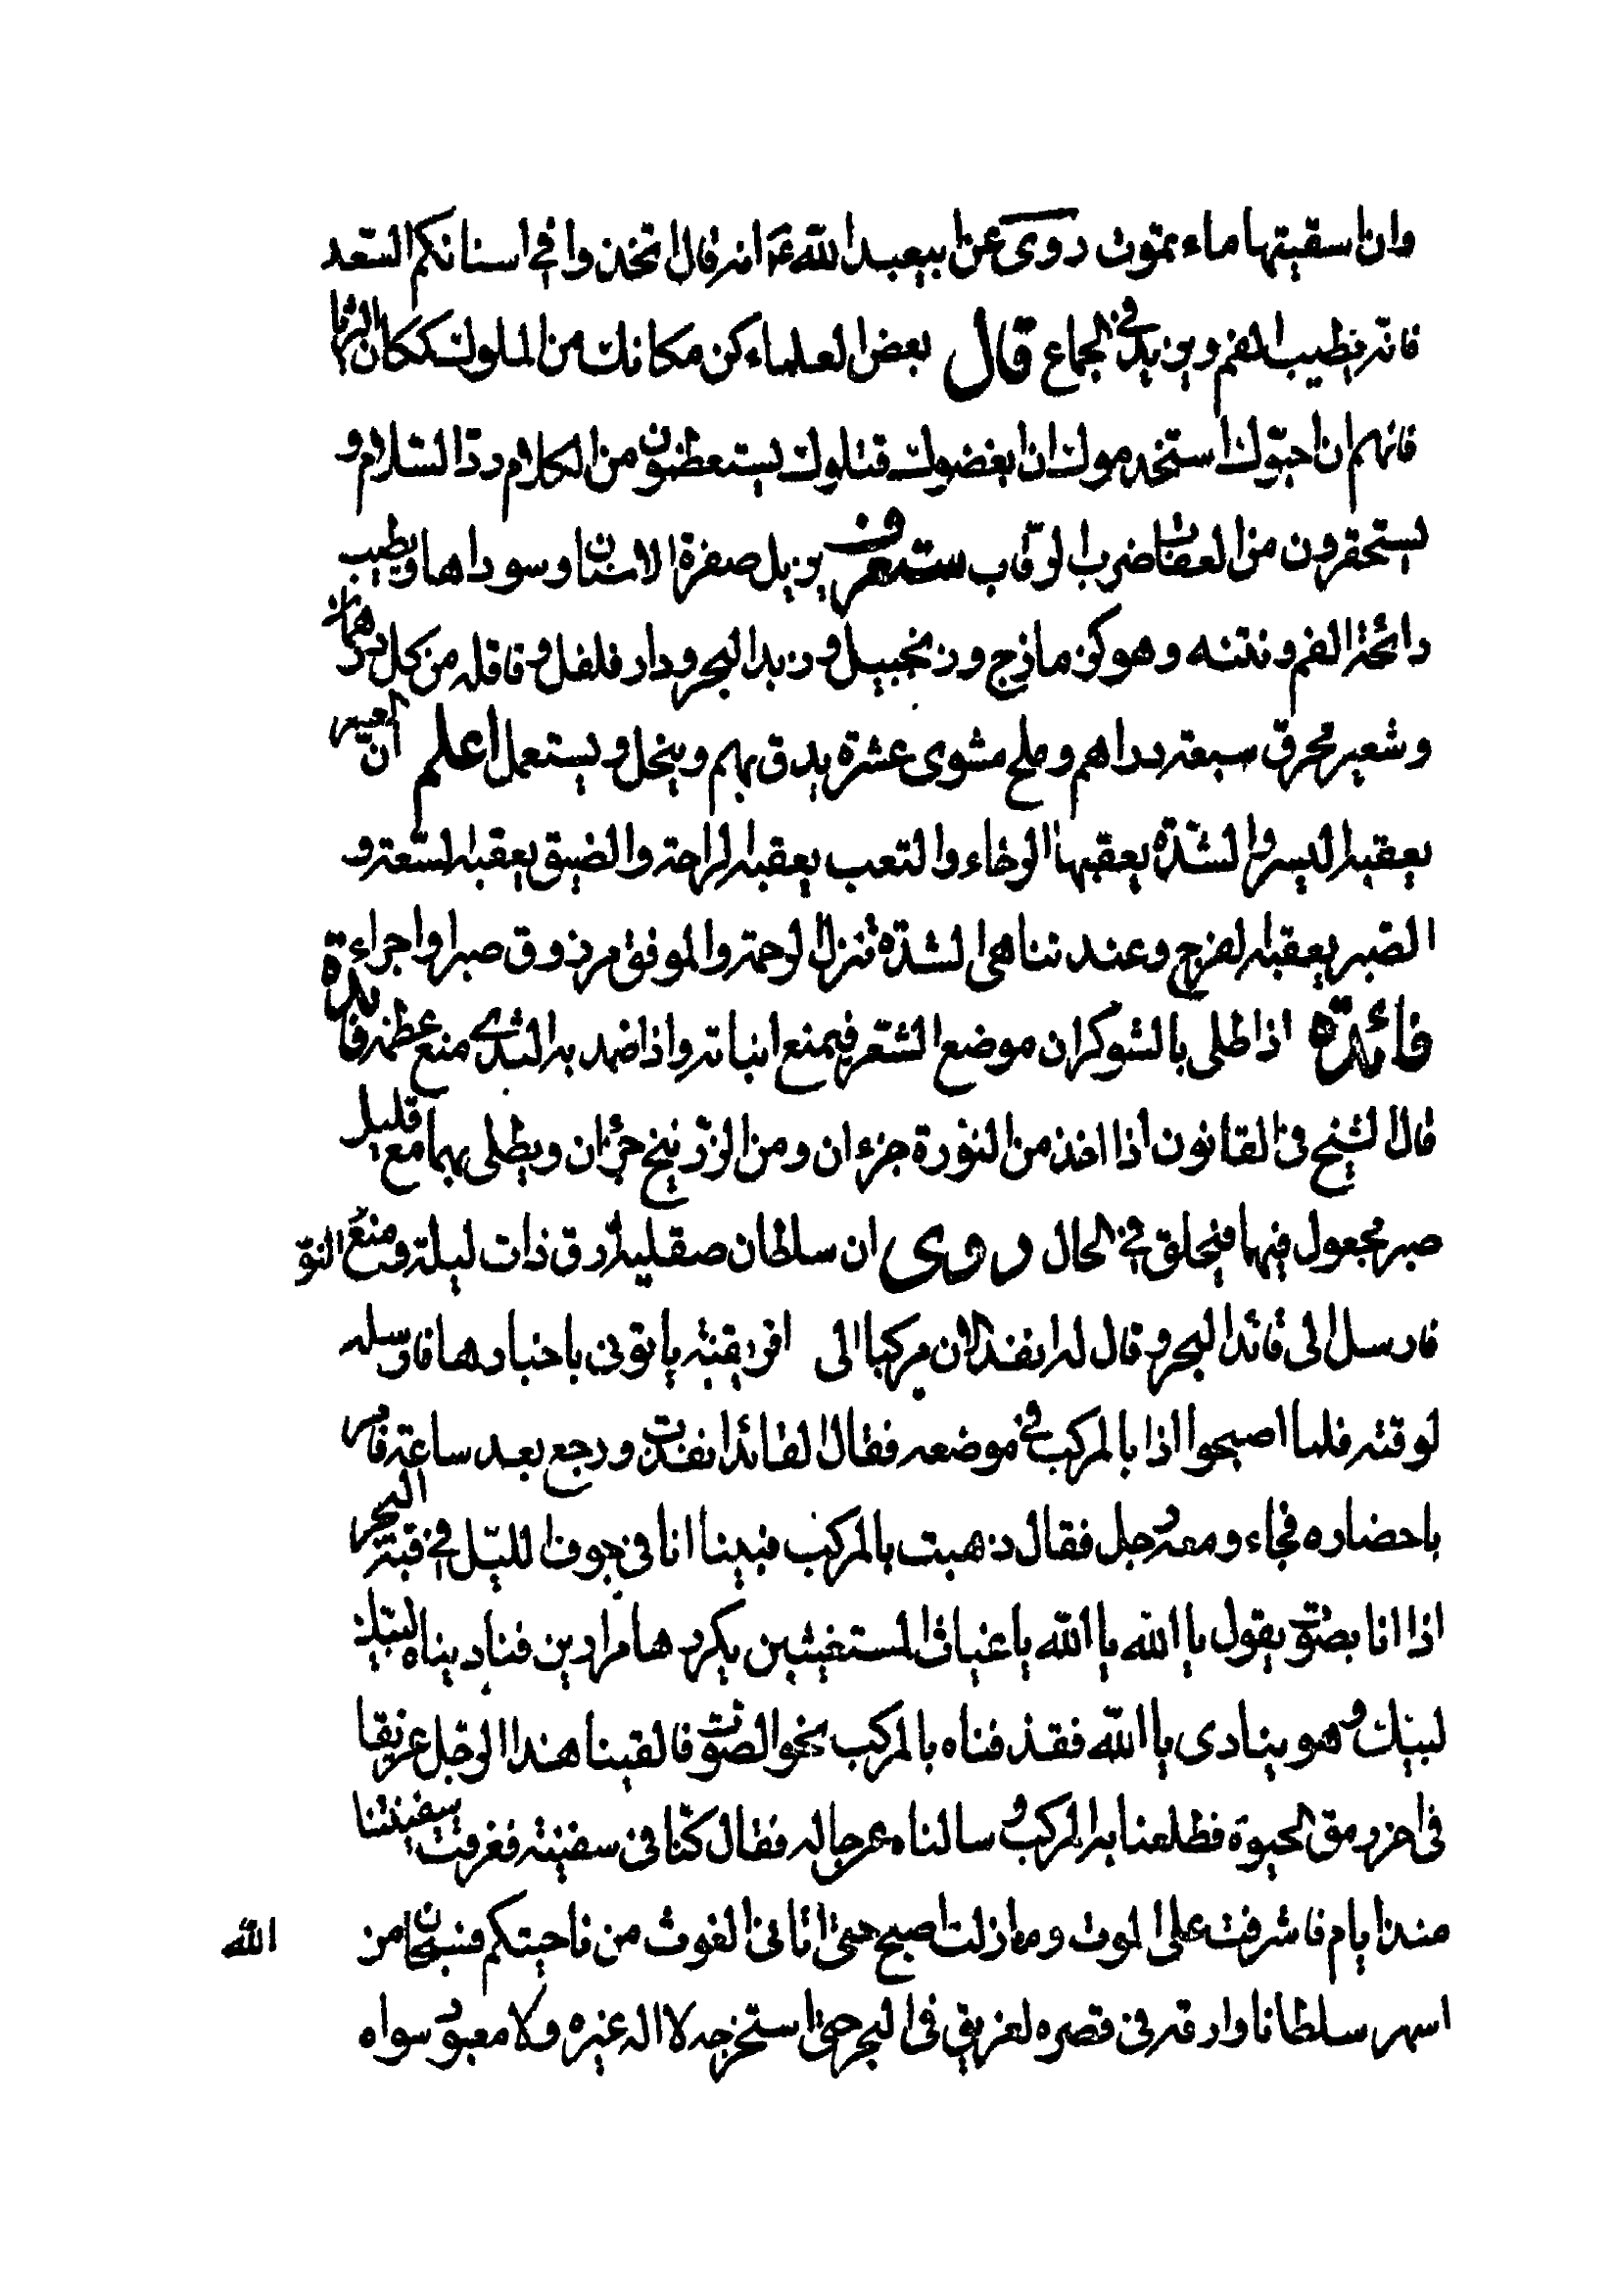 وان اسقيتها ماء تموت روى عن ابيعبد الله ع انه قال اتخذوا في اسنانكم السّعد
فانّه يطيب الفم ويزيد في الجماع قال بعض العلماء كن مكانك من الملوك ككان
فانهم ان احبّوك استخدموك ان ابغضوك قتلوك يستعظمون من الكلام ردّ السّلام و
يستحقرون من العقاب ضرب الرّقاب سنون يزيل صفرة الاسنان وسوداها ويطيب
رائحة الفم ونتنه وهو كزمازج وزنجبيل وزبد البحر ودار فلفل وقاقله من كل درهمان
وشعير محرق سبعة دراهم وملح مشوى عشرة يدق بهم وينخل ويستعمل اعلم ان العسر
يعقبه اليسر والشدّة يعقبها الرخاء والتعب يعقبه الراحة والضيق يعقبه السّعة و
الصّبر يعقبه الفرج وعند تناهى الشدّة تنزل الرحمة والموفق مرزوق صبرا واجراء
فائدة اذا طلى بالشوكران موضع الشّعر فيمنع انباته واذا ضمد به الثدى منع عظمه فائدة
قال الشيخ في القانون اذا اخذ من النورة جزءان ومن الزرنيخ جزءان ويطلى بهما مع قليل
صبر مجعول فيهما فيحلق في الحال روى ان سلطان صقلية ارق ذات ليلة ومنع النوّ
فارسل الى قائد البحر وقال له انفذ الان مركبا الى افريقية ياتونى باخبارها فارسله
لوقته فلما اصبحوا اذا بالمركب في موضعه فقال القائد انفذت ورجع بعد ساعة فامر
باحضاره فجاء ومعه رجل فقال ذهبت بالمركب فبينا انا في جوف الليل في قبة البحر
اذا انا بصوت يقول يا الله يا الله يا غياث المستغيثين يكررها مرارين فناديناه لبيك
لبيك وهو ينادى يا الله فقذفناه بالمركب نحو الصّوت فالقينا هذا الرجل غريقا
في اخر رمق الحيوة فطلعنا به المركب وسالناه عن حاله فقال كنّا في سفينة فغرقت سفينتنا
منذ ايام فاشرفت على الموت وما زلت اصيح حتى اتانى الغوث من ناحيتكم فسبحان من
الله
اسهر سلطانا وارقه في قصره لغريق في البحر حتى استخرجه لا اله غيره ولا معبود سواه